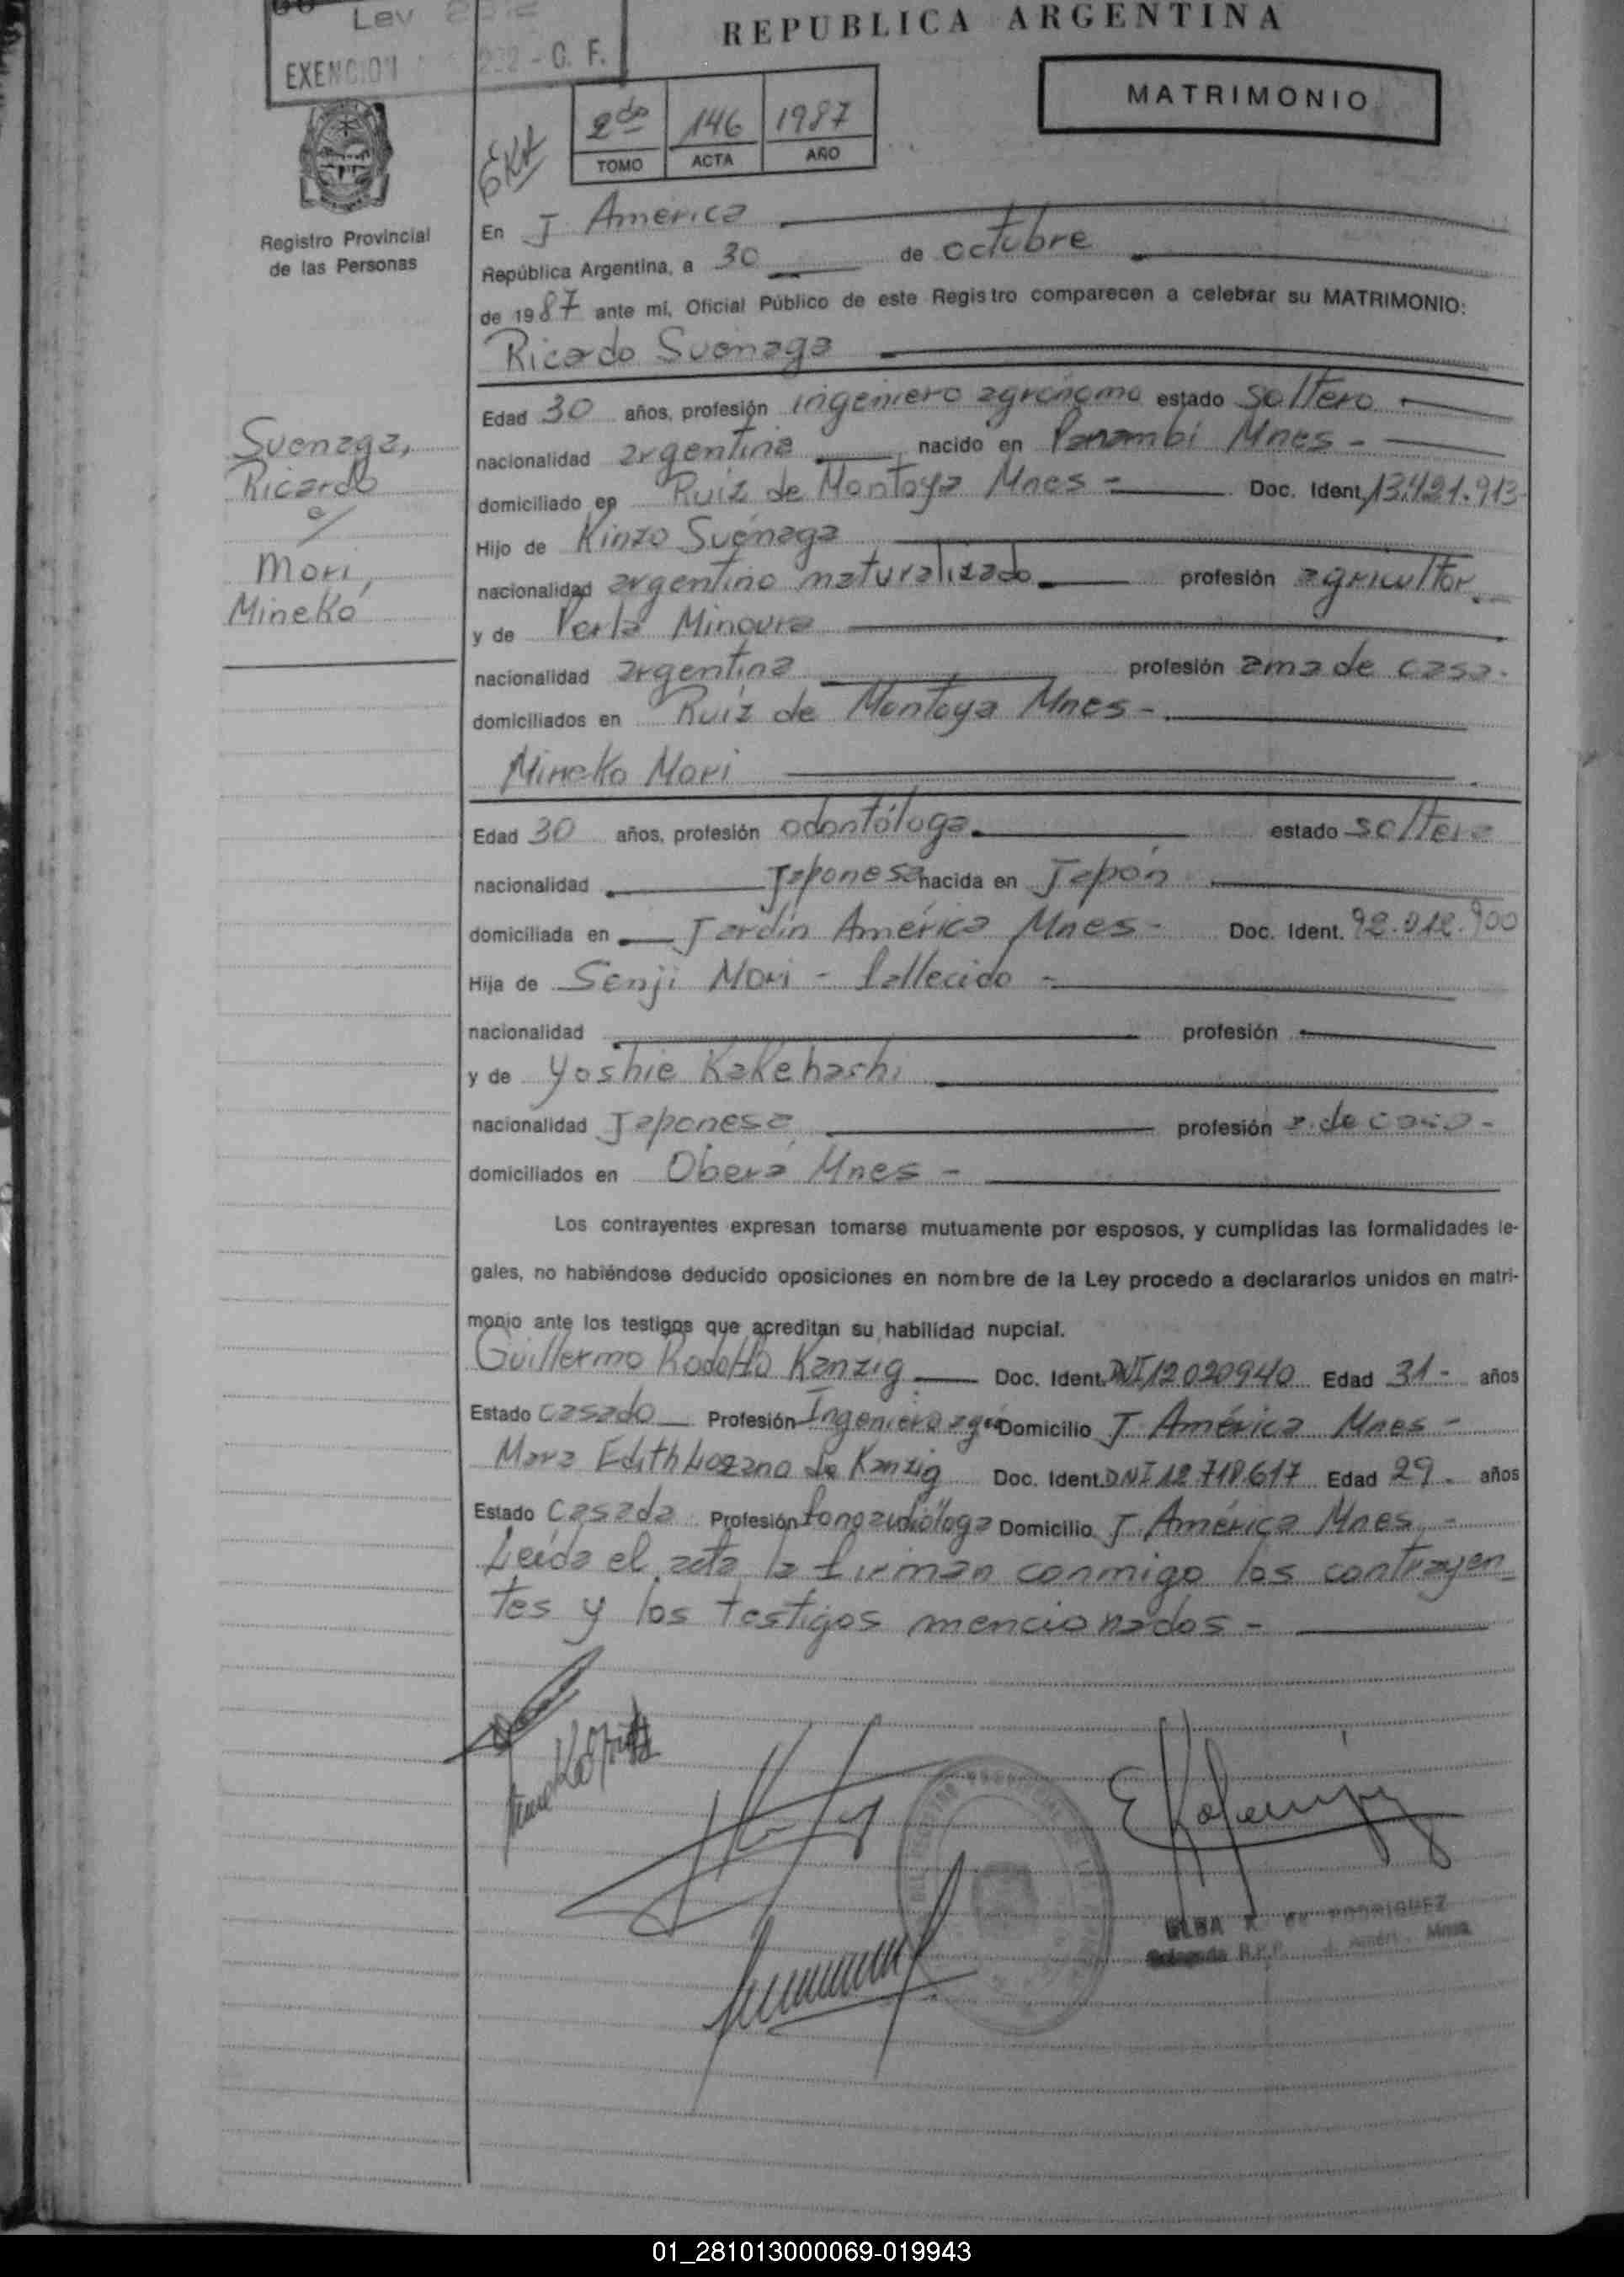 Ley
EXENCION - C. F.
REPUBLICA ARGENTINA
MATRIMONIO
2do 146 1987
TOMO ACTA AÑO
Registro Provincial
de las Personas
En J. América
República Argentina, a 30 de octubre
de 1987 ante mí, Oficial Público de este Registro comparecen a celebrar su MATRIMONIO:
Ricardo Suenaga
Suenaga,
Ricardo
c/
Mori,
Mineko
Edad 30 años, profesión ingeniero agrónomo estado soltero
nacionalidad argentina nacido en Panambí Mnes -
domiciliado en Ruiz de Montoya Mnes - Doc. Ident. 13.421.913
Hijo de Kinzo Suenaga
nacionalidad argentino naturalizado profesión agricultor
y de Perla Minoura
nacionalidad argentina profesión ama de casa.
domiciliados en Ruiz de Montoya Mnes -
Mineko Mori
Edad 30 años, profesión odontóloga estado soltera
nacionalidad Japonesa nacida en Japón
domiciliada en Jardín América Mnes - Doc. Ident. 92.012.900
Hija de Senji Mori - fallecido -
nacionalidad profesión
y de Yoshie Kakehashi
nacionalidad Japonesa profesión a. de casa -
domiciliados en Oberá Mnes -
Los contrayentes expresan tomarse mutuamente por esposos, y cumplidas las formalidades le-
gales, no habiéndose deducido oposiciones en nombre de la Ley procedo a declararlos unidos en matri-
monio ante los testigos que acreditan su habilidad nupcial.
Guillermo Rodolfo Kanzig Doc. Ident. DNI 12020940 Edad 31 - años
Estado casado Profesión Ingeniero agró Domicilio J América Mnes -
Mara Edith Lozano de Kanzig Doc. Ident. DNI 12 718.617 Edad 29 . años
Estado casada Profesión fonoaudióloga Domicilio J. América Mnes -
Leída el acta la firman conmigo los contrayen=
tes y los testigos mencionados -
ELBA K. DE RODRIGUEZ
Delegada R.P.P. J. Améri. Mnes.
01_281013000069-019943